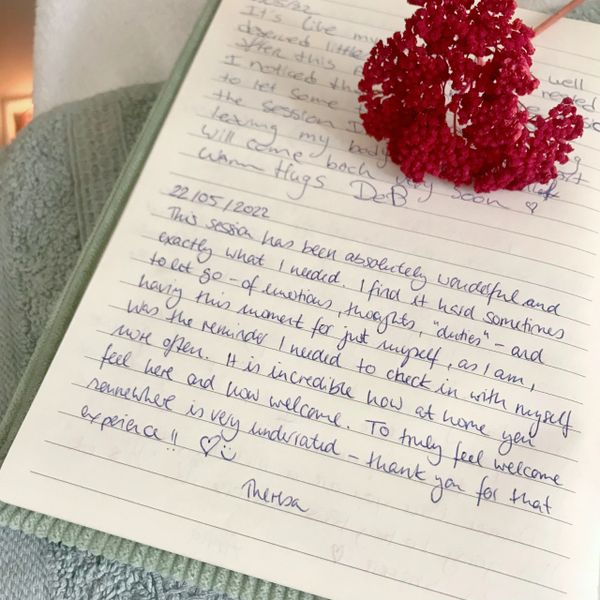 /22
It's like my well
deserved little needed
after this
I noticed th
to let some
the session I
leaving my body
will come back very soon ♡
Warm Hugs DeB
22/05/2022
This session has been absolutely wonderful and
exactly what I needed. I find it hard sometimes
to let go - of emotions, thoughts, "duties" - and
having this moment for just myself, as I am,
was the reminder I needed to check in with myself
more often. It is incredible how at home you
feel here and how welcome. To truly feel welcome
somewhere is very underrated - thank you for that
experience!! ♡
Theresa